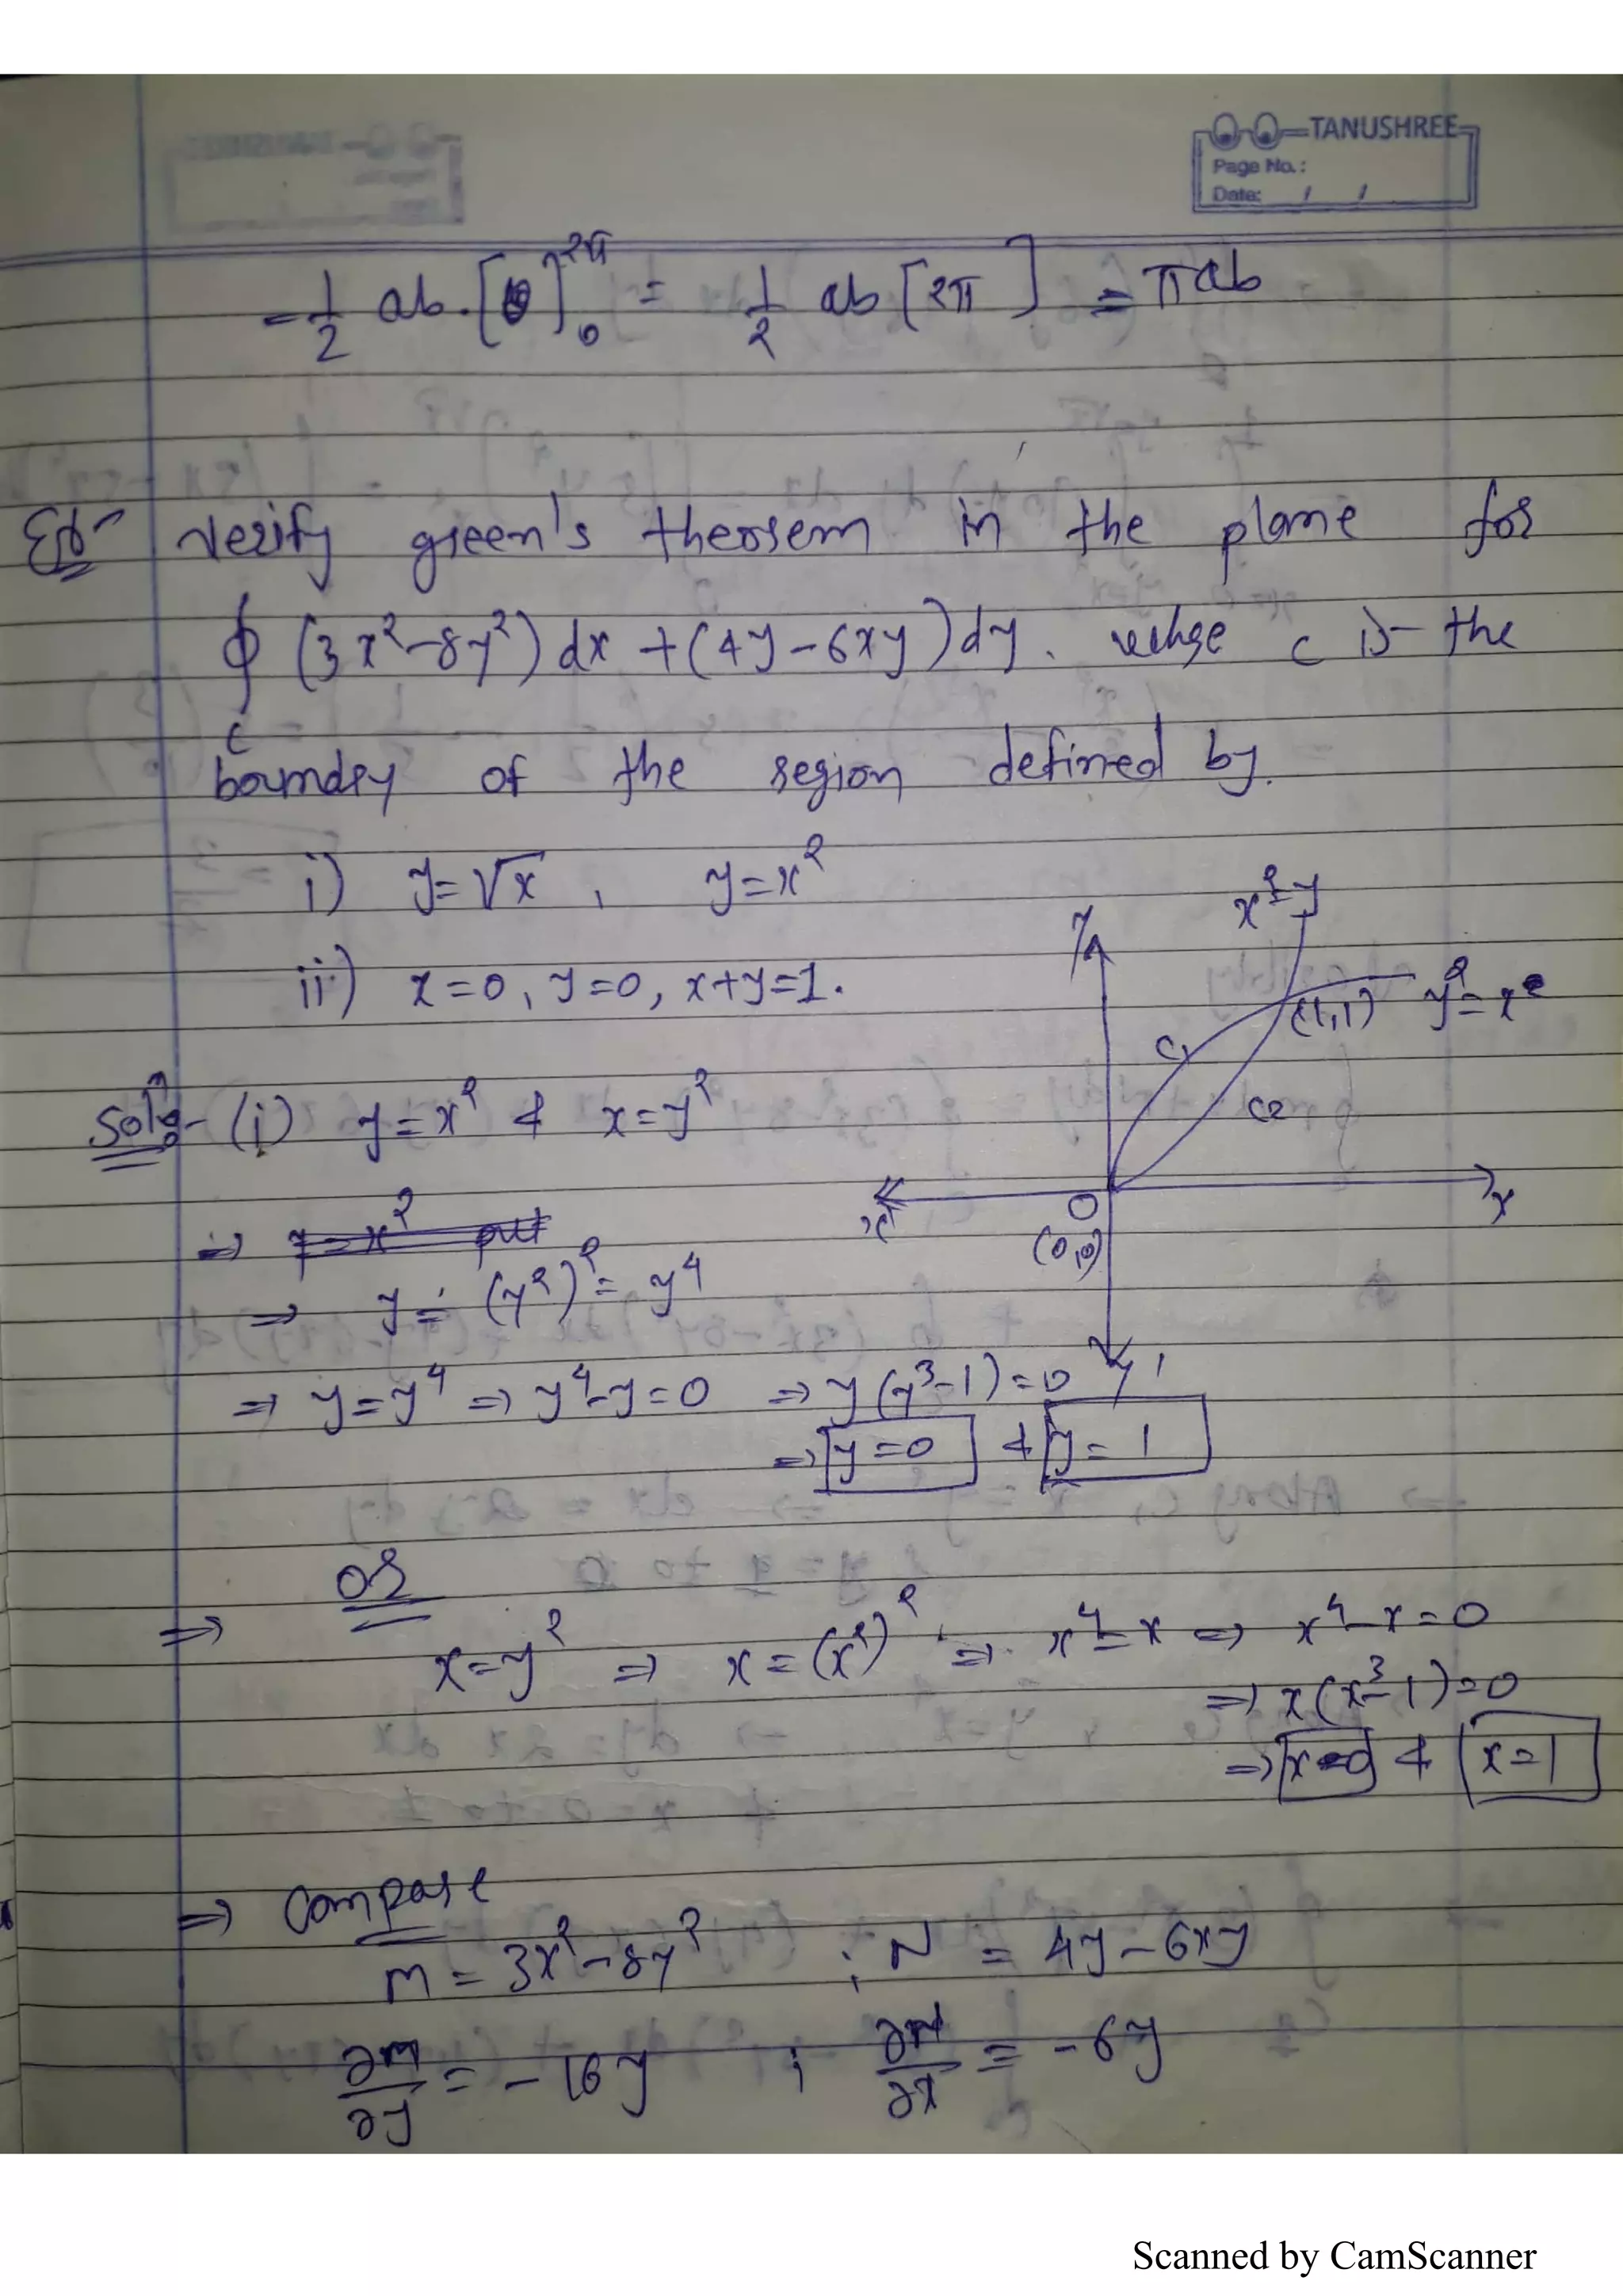 TANUSHREE
Page No.:
Date: / /
= 1/2 ab.[θ]₀^2π = 1/2 ab [2π] = πab
Ex- Verify green's theorem in the plane for
∮ (3x²-8y²)dx + (4y-6xy)dy. where c is the
c
boundry of the region defined by.
i) y=√x , y=x²
ii) x=0, y=0, x+y=1.
x²=y
y
(1,1) y²=x
C₁
C2
x' O x
(0,0)
y'
Solⁿ:- (i) y=x² & x=y²
⇒ y=x² put
⇒ y = (y²)² = y⁴
⇒ y=y⁴ ⇒ y⁴-y=0 ⇒ y(y³-1)=0
⇒ y=0 & y=1
OR
⇒ x=y² ⇒ x=(x²)² ⇒ x⁴=x ⇒ x⁴-x=0
⇒ x(x³-1)=0
⇒ x=0 & x=1
⇒ Compare
M = 3x²-8y² ; N = 4y-6xy
∂M/∂y = -16y ; ∂N/∂x = -6y
Scanned by CamScanner